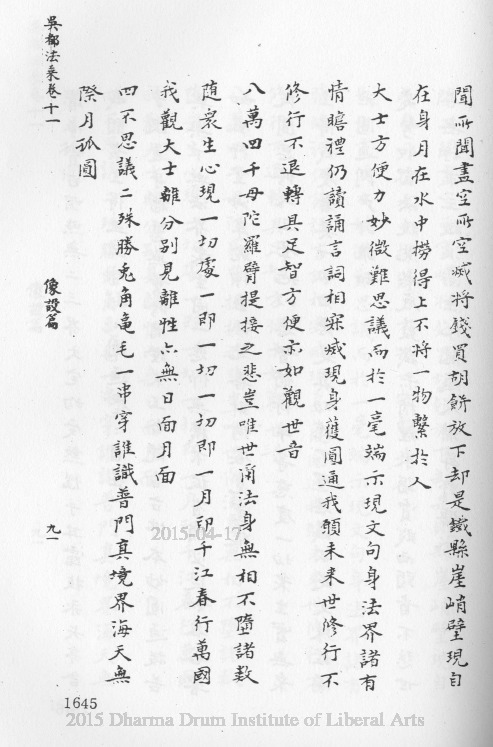 聞所聞盡空所空滅將錢買胡餅放下却是鐵縣崖峭壁現自
在身月在水中撈得上不將一物繫於人
大士方便力妙微難思議而於一毫端示現文句身法界諸有
情瞻禮仍讀誦言詞相寂滅現身獲圓通我願未来世修行不
修行不退轉具足智方便亦如觀世音
八萬四千母陀羅臂提接之悲豈唯世閒法身無相不墮諸數
随衆生心現一切處一即一切一切即一月印千江春行萬國
我觀大士離分别見離性亦無日面月面
四不思議二殊勝兎角龜毛一串穿誰識普門真境界海天無
際月孤圓
吳都法乘卷十一
像設篇
九一
1645
2015-04-17
2015 Dharma Drum Institute of Liberal Arts